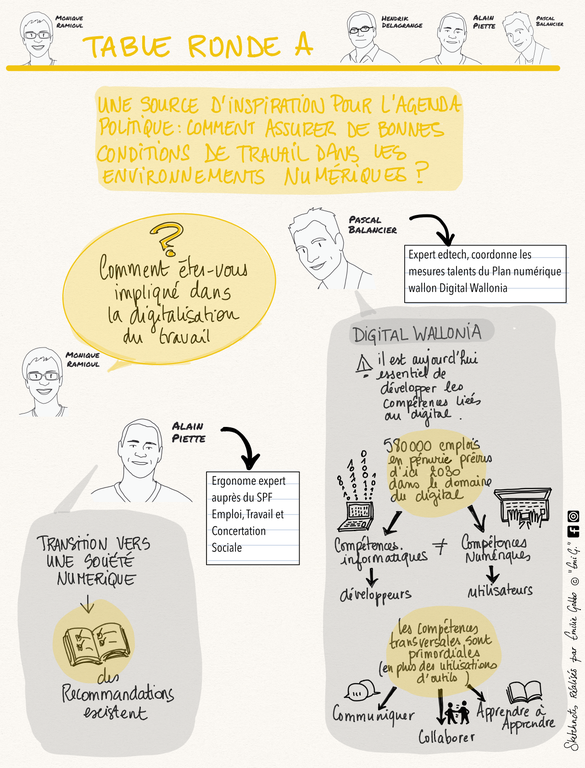 Monique
Ramioul
TABLE RONDE A
Hendrik
Delagrange
Alain
Piette
Pascal
Balancier
UNE SOURCE D'INSPIRATION POUR L'AGENDA
POLITIQUE : COMMENT ASSURER DE BONNES
CONDITIONS DE TRAVAIL DANS LES
ENVIRONNEMENTS NUMÉRIQUES ?
?
Comment êtes-vous
impliqué dans
la digitalisation
du travail
Monique
Ramioul
Pascal
Balancier
Expert edtech, coordonne les
mesures talents du Plan numérique
wallon Digital Wallonia
DIGITAL WALLONIA
il est aujourd'hui
essentiel de
développer les
compétences liées
au digital.
580000 emplois
en pénurie prévus
d'ici 2030
dans le domaine
du digital
Compétences informatiques ≠ Compétences Numériques
développeurs
utilisateurs
les compétences
transversales sont
primordiales
(en plus des utilisations
d'outils)
Communiquer
Collaborer
Apprendre à
Apprendre
Alain
Piette
Ergonome expert
auprès du SPF
Emploi, Travail et
Concertation
Sociale
TRANSITION VERS
UNE SOCIÉTÉ
NUMERIQUE
des
Recommandations
existent
Sketchnote réalisés par Emilie Gobbo © "Emi G."